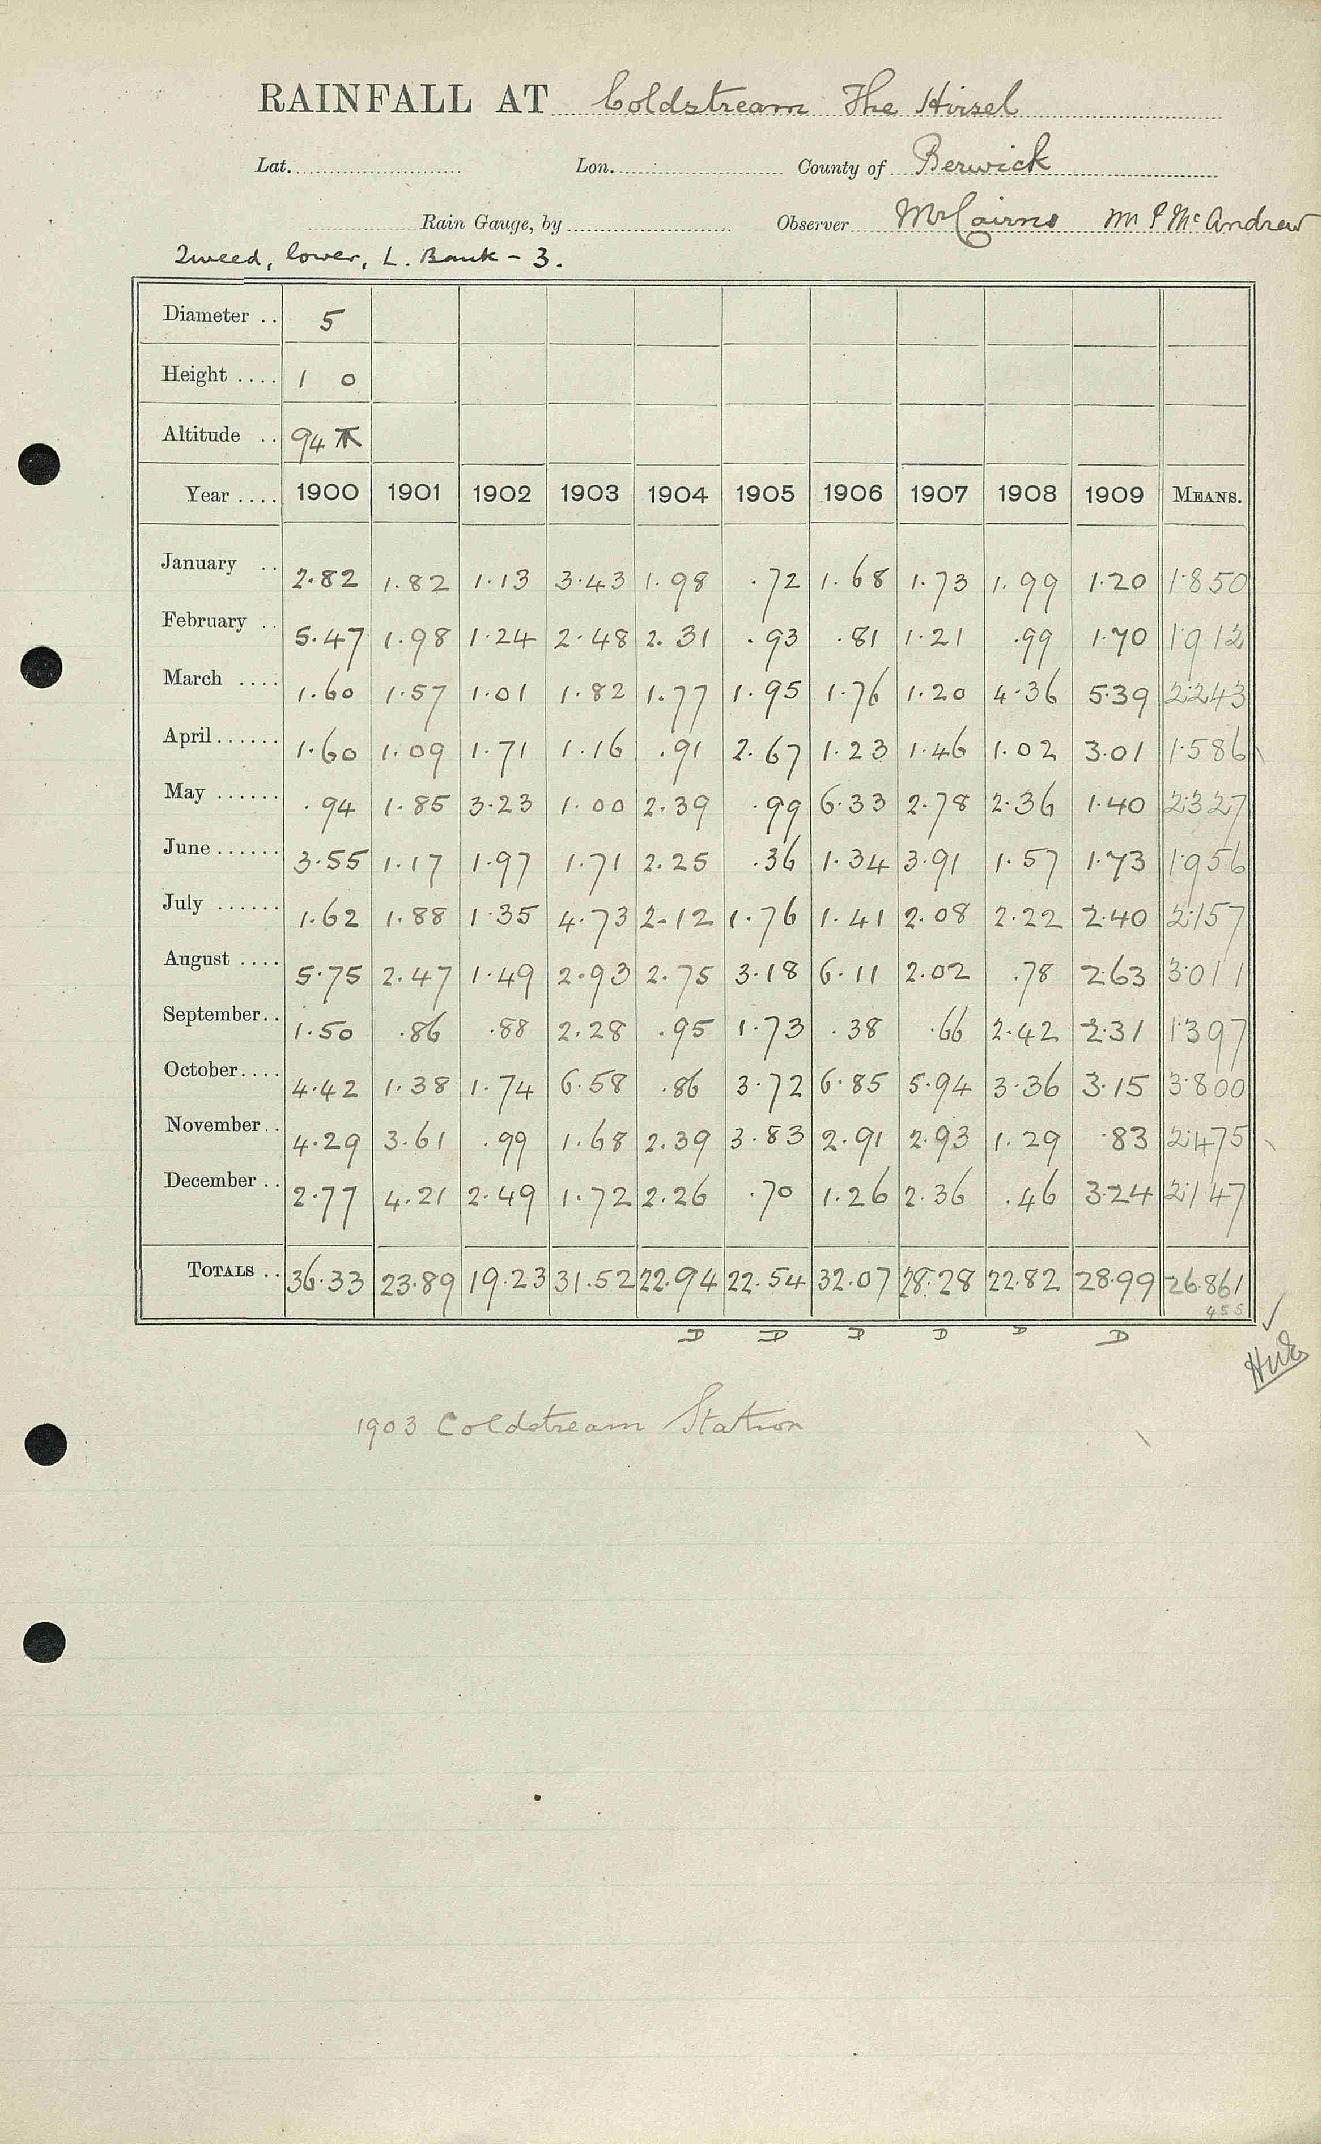 RAINFALL AT Coldstream The Hirsel
Lat. Lon. County of Berwick
Rain Gauge, by Observer Mr Cairns Mr P McAndrew
Tweed, lower, L. Bank - 3.
Diameter .. 5
Height .... 1 0
Altitude .. 94
Year .... 1900 1901 1902 1903 1904 1905 1906 1907 1908 1909 MEANS.
January .. 2.82 1.82 1.13 3.43 1.98 .72 1.68 1.73 1.99 1.20 1.850
February .. 5.47 1.98 1.24 2.48 2.31 .93 .81 1.21 .99 1.70 1.912
March .... 1.60 1.57 1.01 1.82 1.77 1.95 1.76 1.20 4.36 5.39 2.243
April ...... 1.60 1.09 1.71 1.16 .91 2.67 1.23 1.46 1.02 3.01 1.586
May ...... .94 1.85 3.23 1.00 2.39 .99 6.33 2.78 2.36 1.40 2.327
June ...... 3.55 1.17 1.97 1.71 2.25 .36 1.34 3.91 1.57 1.73 1.956
July ...... 1.62 1.88 1.35 4.73 2.12 1.76 1.41 2.08 2.22 2.40 2.157
August .... 5.75 2.47 1.49 2.93 2.75 3.18 6.11 2.02 .78 2.63 3.011
September .. 1.50 .86 .88 2.28 .95 1.73 .38 .66 2.42 2.31 1.397
October .... 4.42 1.38 1.74 6.58 .86 3.72 6.85 5.94 3.36 3.15 3.800
November .. 4.29 3.61 .99 1.68 2.39 3.83 2.91 2.93 1.29 .83 2.475
December .. 2.77 4.21 2.49 1.72 2.26 .70 1.26 2.36 .46 3.24 2.147
TOTALS .. 36.33 23.89 19.23 31.52 22.94 22.54 32.07 28.28 22.82 28.99 26.861
D D D D D D
1903 Coldstream Station